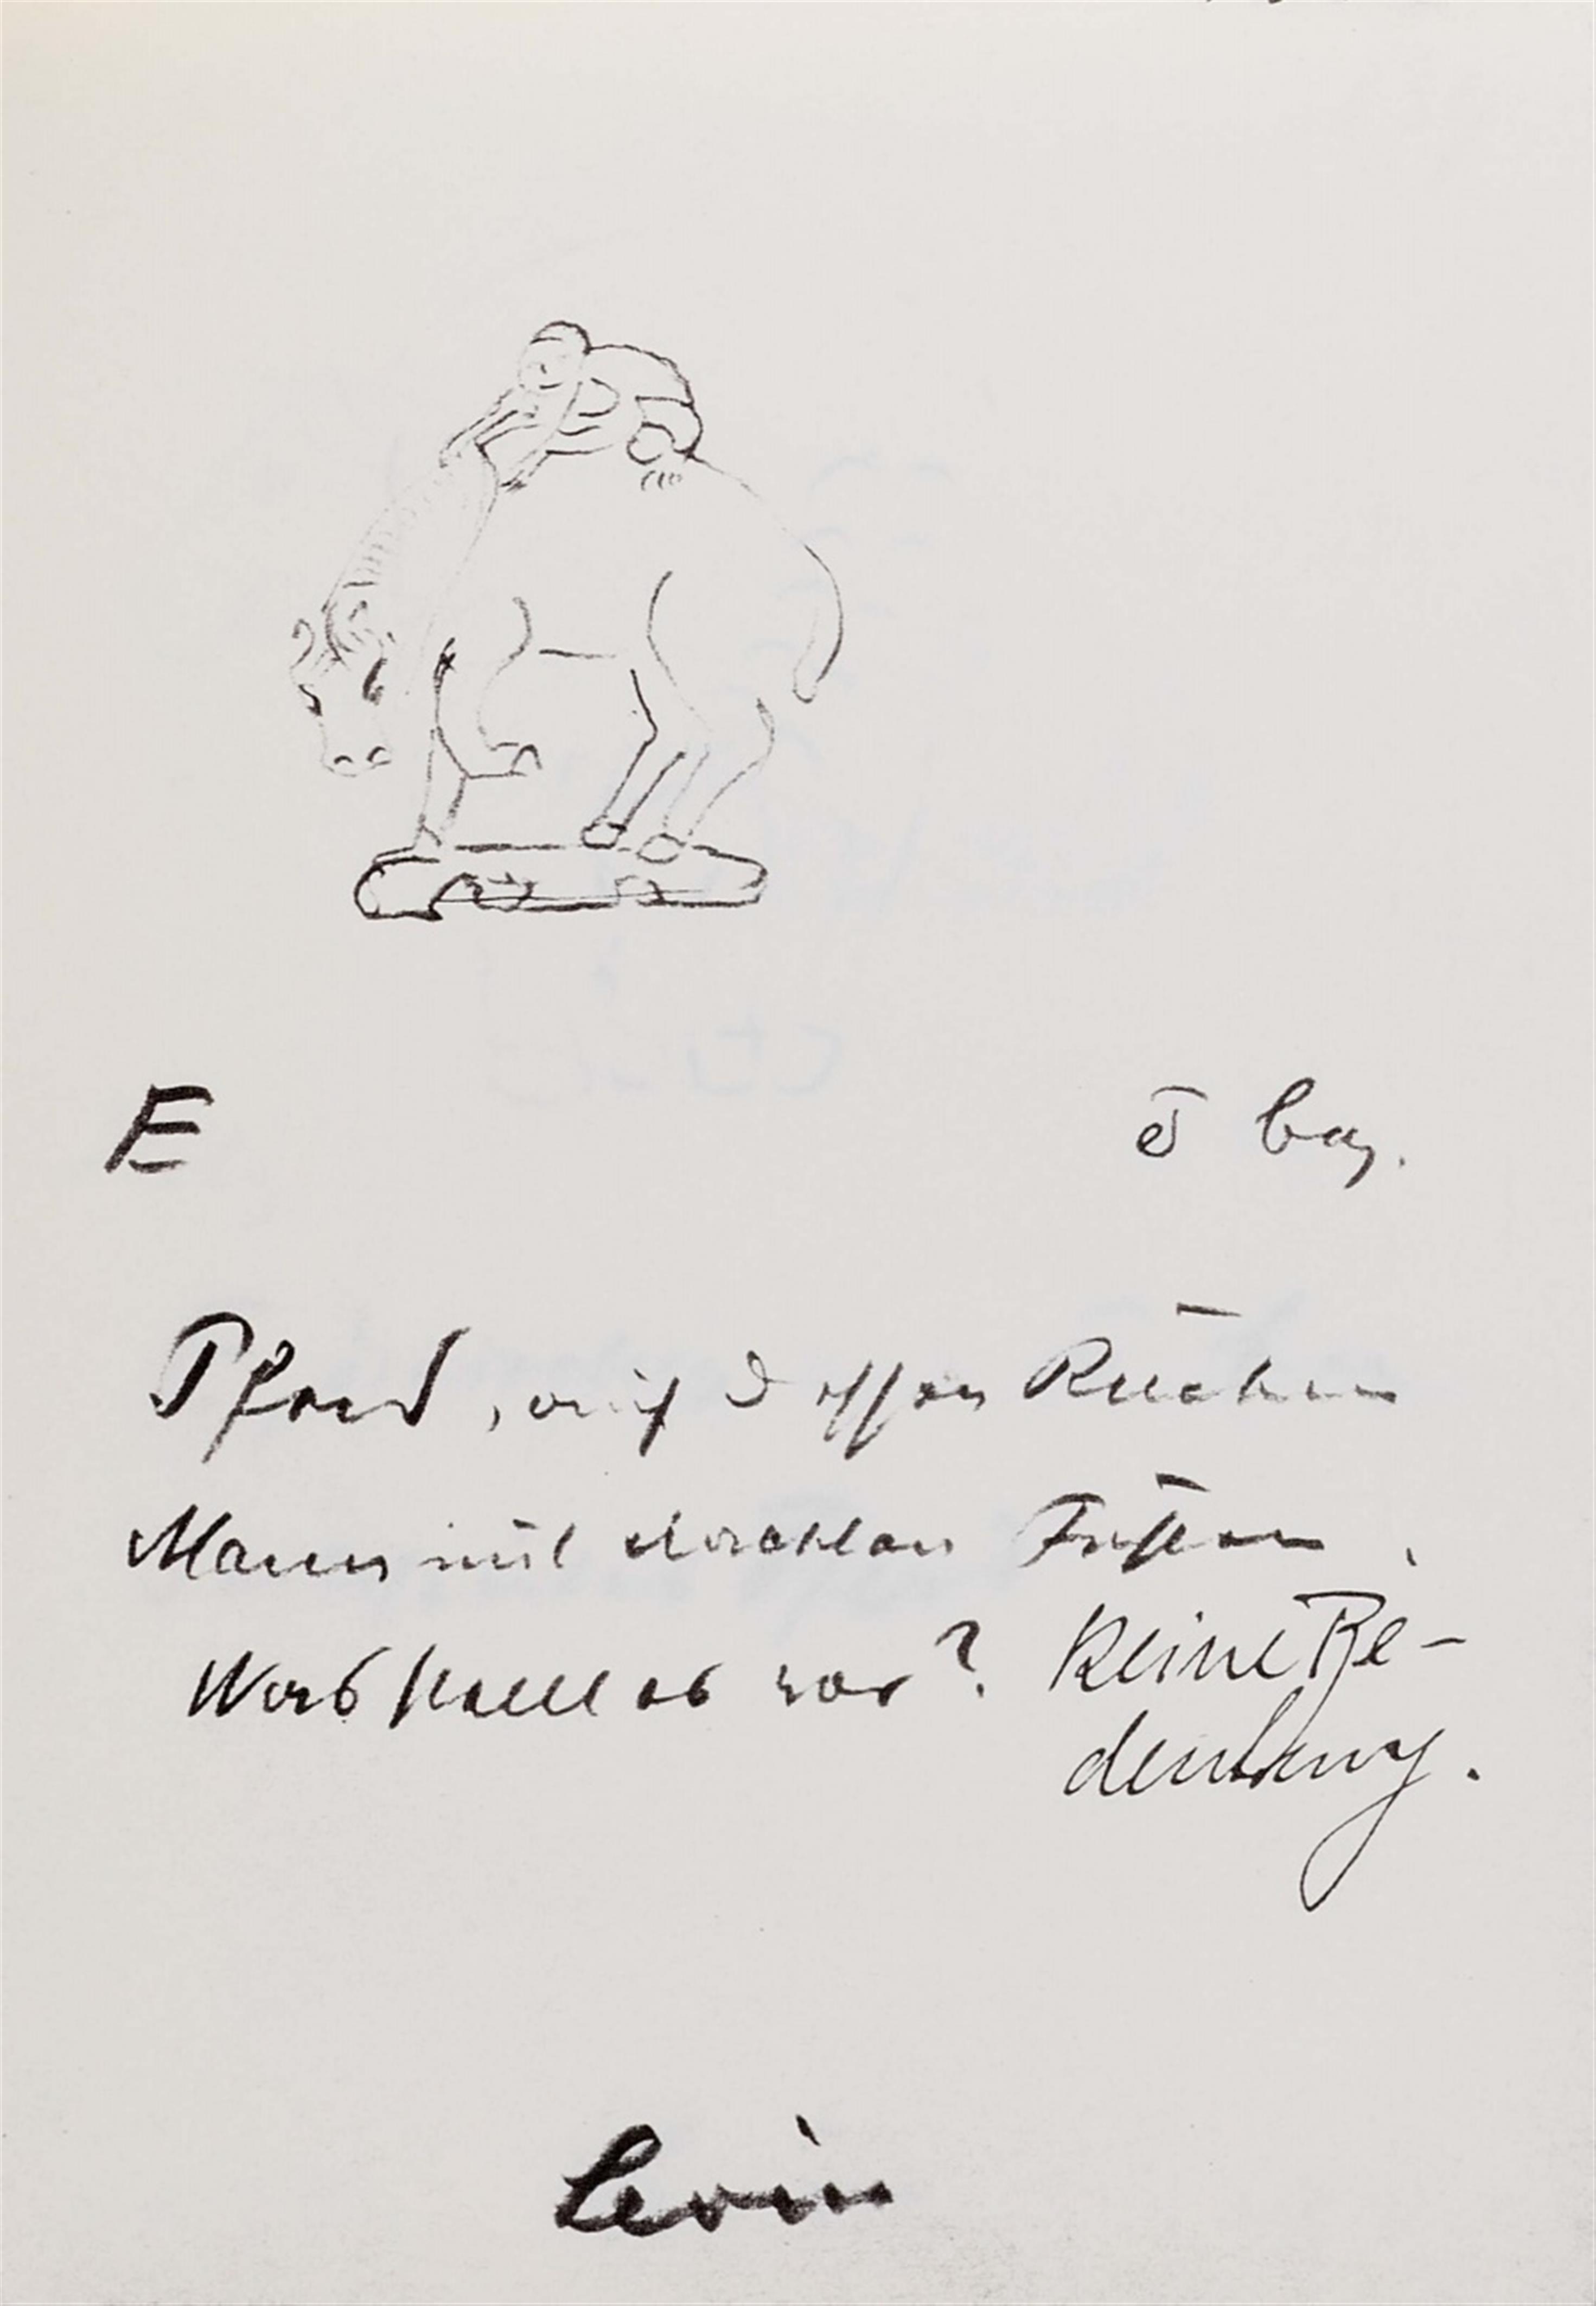 E
Pferd, auf dessen Rücken
Mann mit nackten Füssen.
Was stellt es vor? Keine Be-
deutung.
Levin